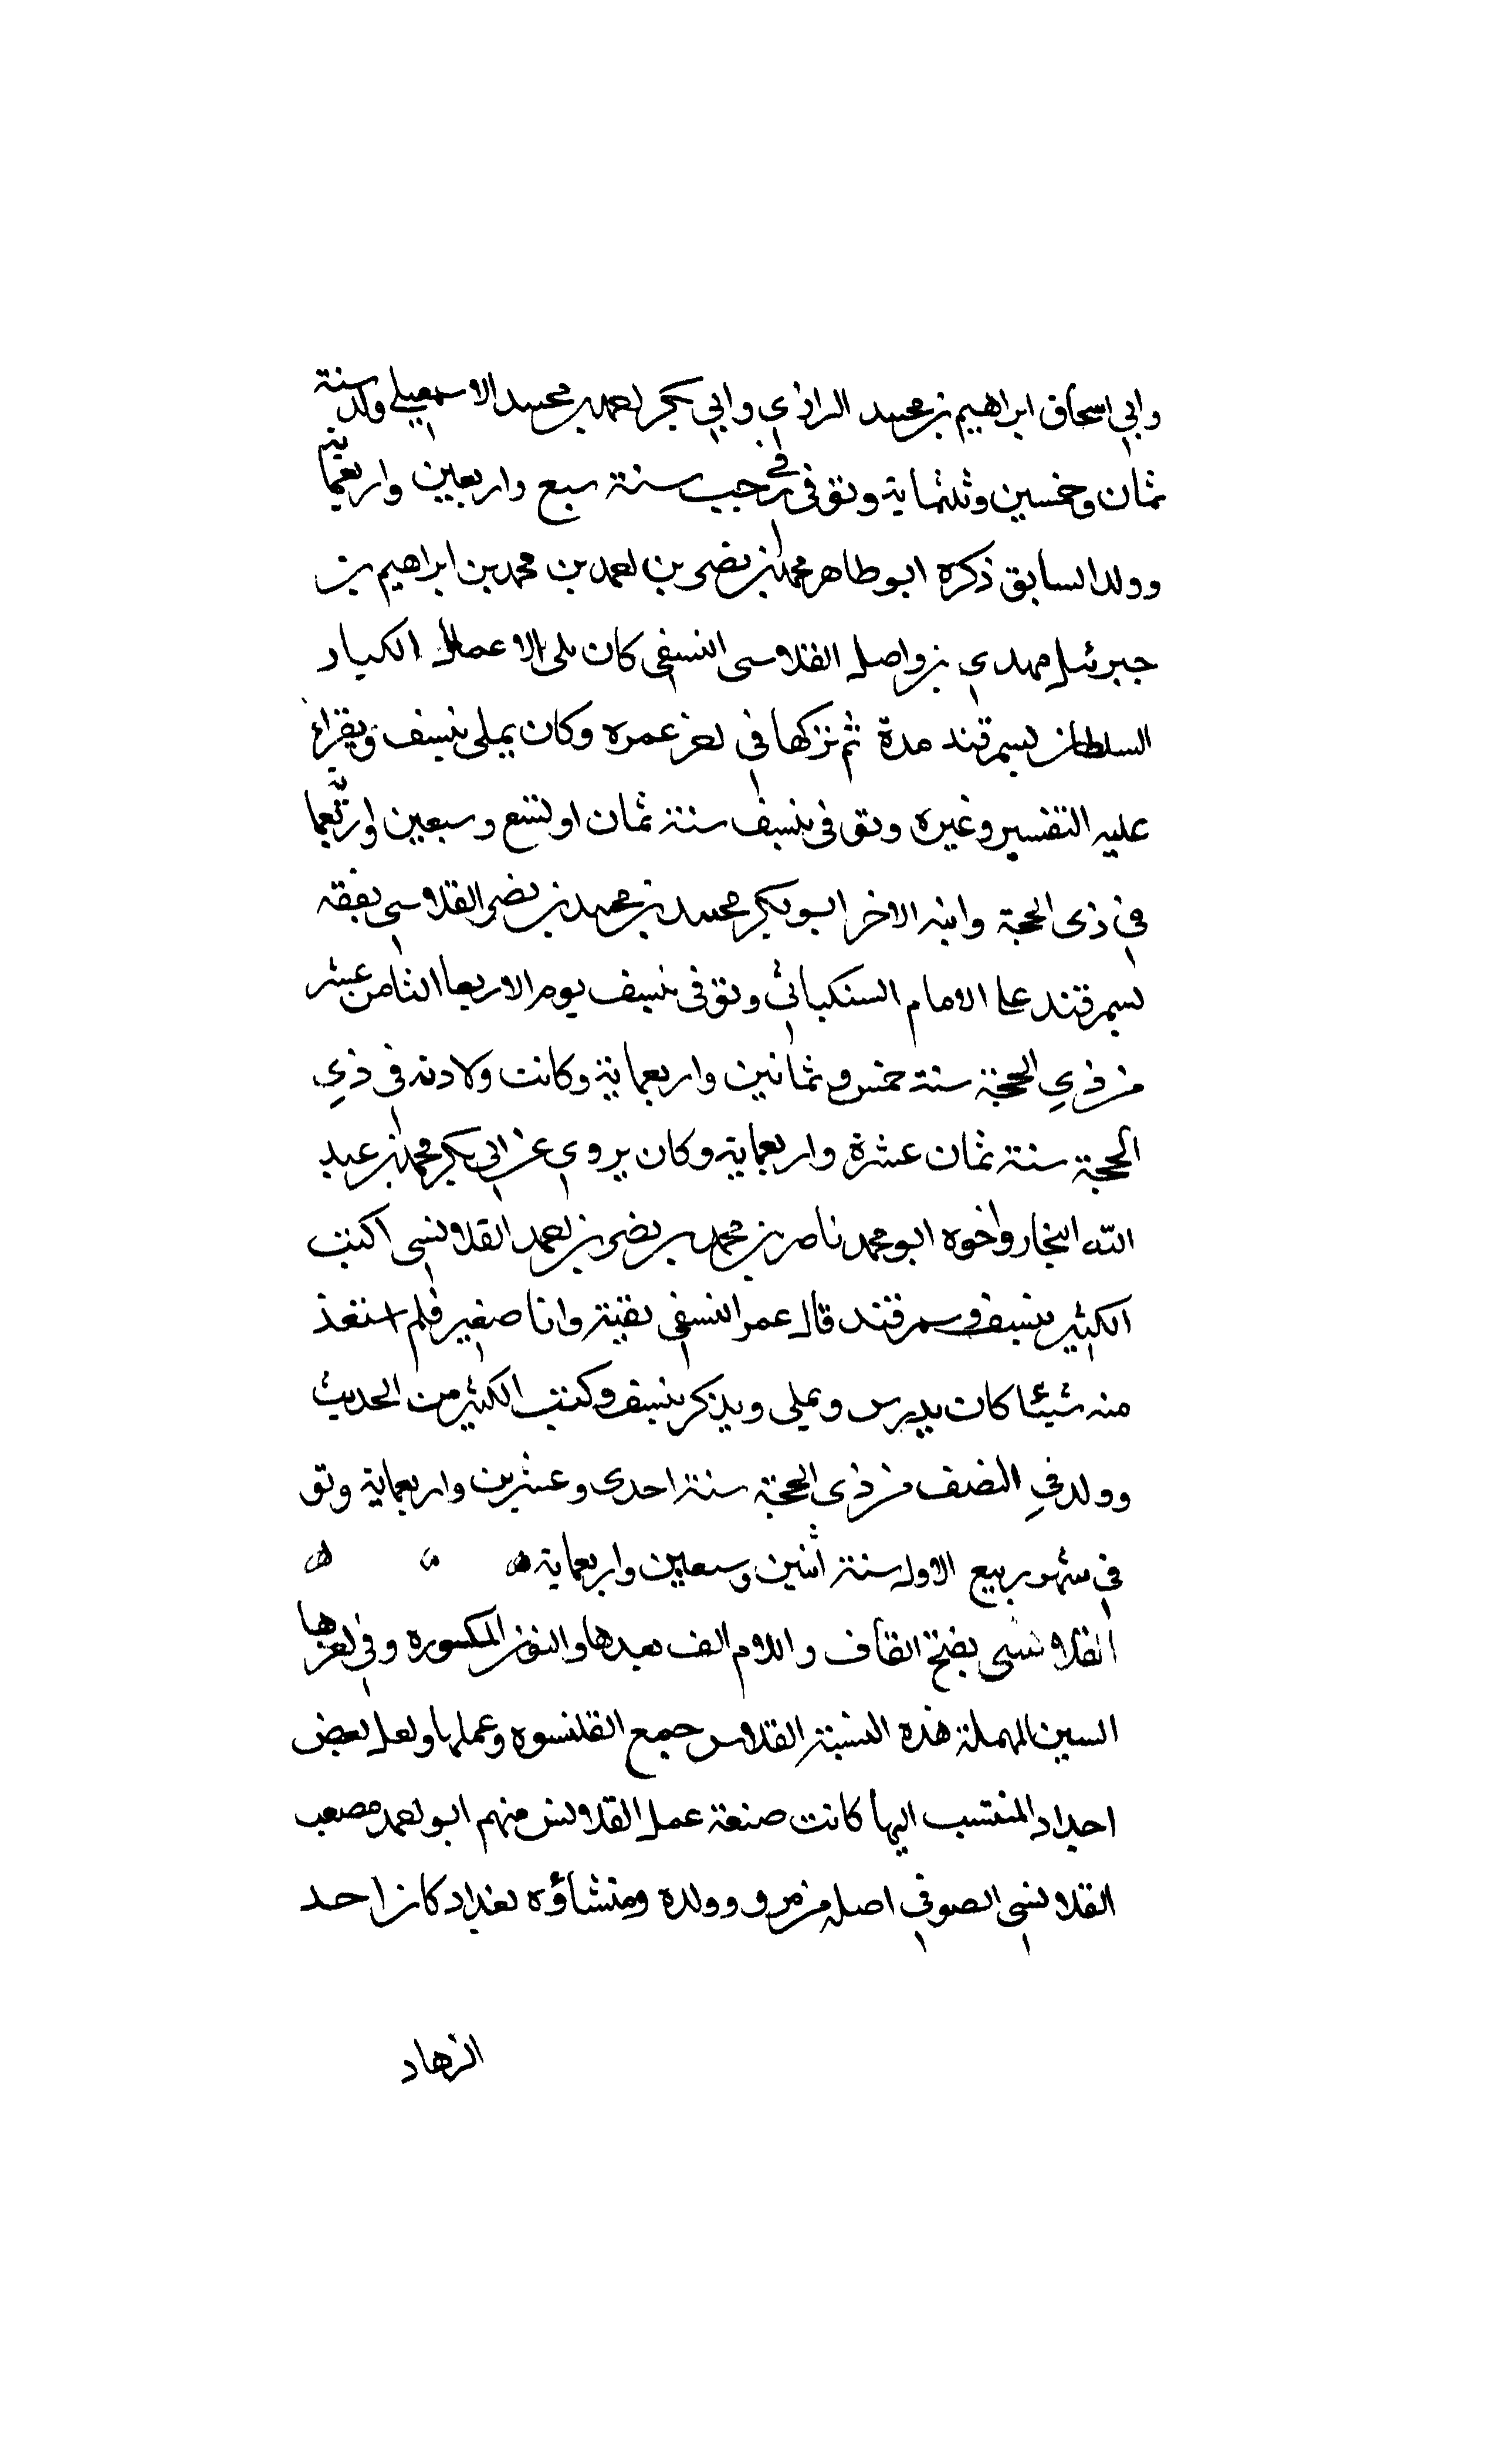 وابي اسحاق ابراهيم بن محمد الرازي وابي بكر احمد بن محمد الاسمعيلي ولد سنة
ثمان وخمسين وثلثماية وتوفي في رجب سنة سبع واربعين واربعماية
وولد السابق ذكره ابو طاهر محمد بن نصر بن احمد بن محمد بن ابراهيم بن
جبرئيل مهدي بن واصل القلاسي النسفي كان يلي الاعمال الكبار
السلطان بسمرقند مدة ثم تركها في اخر عمره وكان يملي بنسف ويقراء
عليه التفسير وغيره وتوفي بنسف سنة ثمان او تسع وسبعين واربعماية
في ذي الحجة وابنه الاخر ابو بكر محمد بن محمد بن نصر القلاسي تفقه
بسمرقند على الامام السنكباثي وتوفي بنسف يوم الاربعا الثامن عشر
من ذي الحجة سنة خمس وثمانين واربعماية وكانت ولادته في ذي
الحجة سنة ثمان عشرة واربعماية وكان يروي عن ابي بكر محمد بن عبد
الله النجار واخوه ابو محمد ناصر بن محمد بن نصر بن احمد القلانسي اكتب
الكثير بنسف وسمرقند قال عمر النسفي لقيته وانا صغير فلم استفد
منه شيئا كان يدرس ويملي ويذكر بنسف وكتب الكثير من الحديث
وولد في النصف من ذي الحجة سنة احدى وعشرين واربعماية وتو
في شهر ربيع الاول سنة اثنين وسبعين واربعماية ه ه ه
القلانسي بفتح القاف واللام الف بعدها والنون المكسوره وفي اخرها
السين المهملة هذه النسبة القلانس جمع القلنسوه وعملها ولعل بعض
اجداد المنتسب اليها كانت صنعة عمل القلانس منهم ابو احمد مصعب
القلانسي الصوفي اصله من مرو وولده ومنشاؤه بغداد كان احد
الزهاد